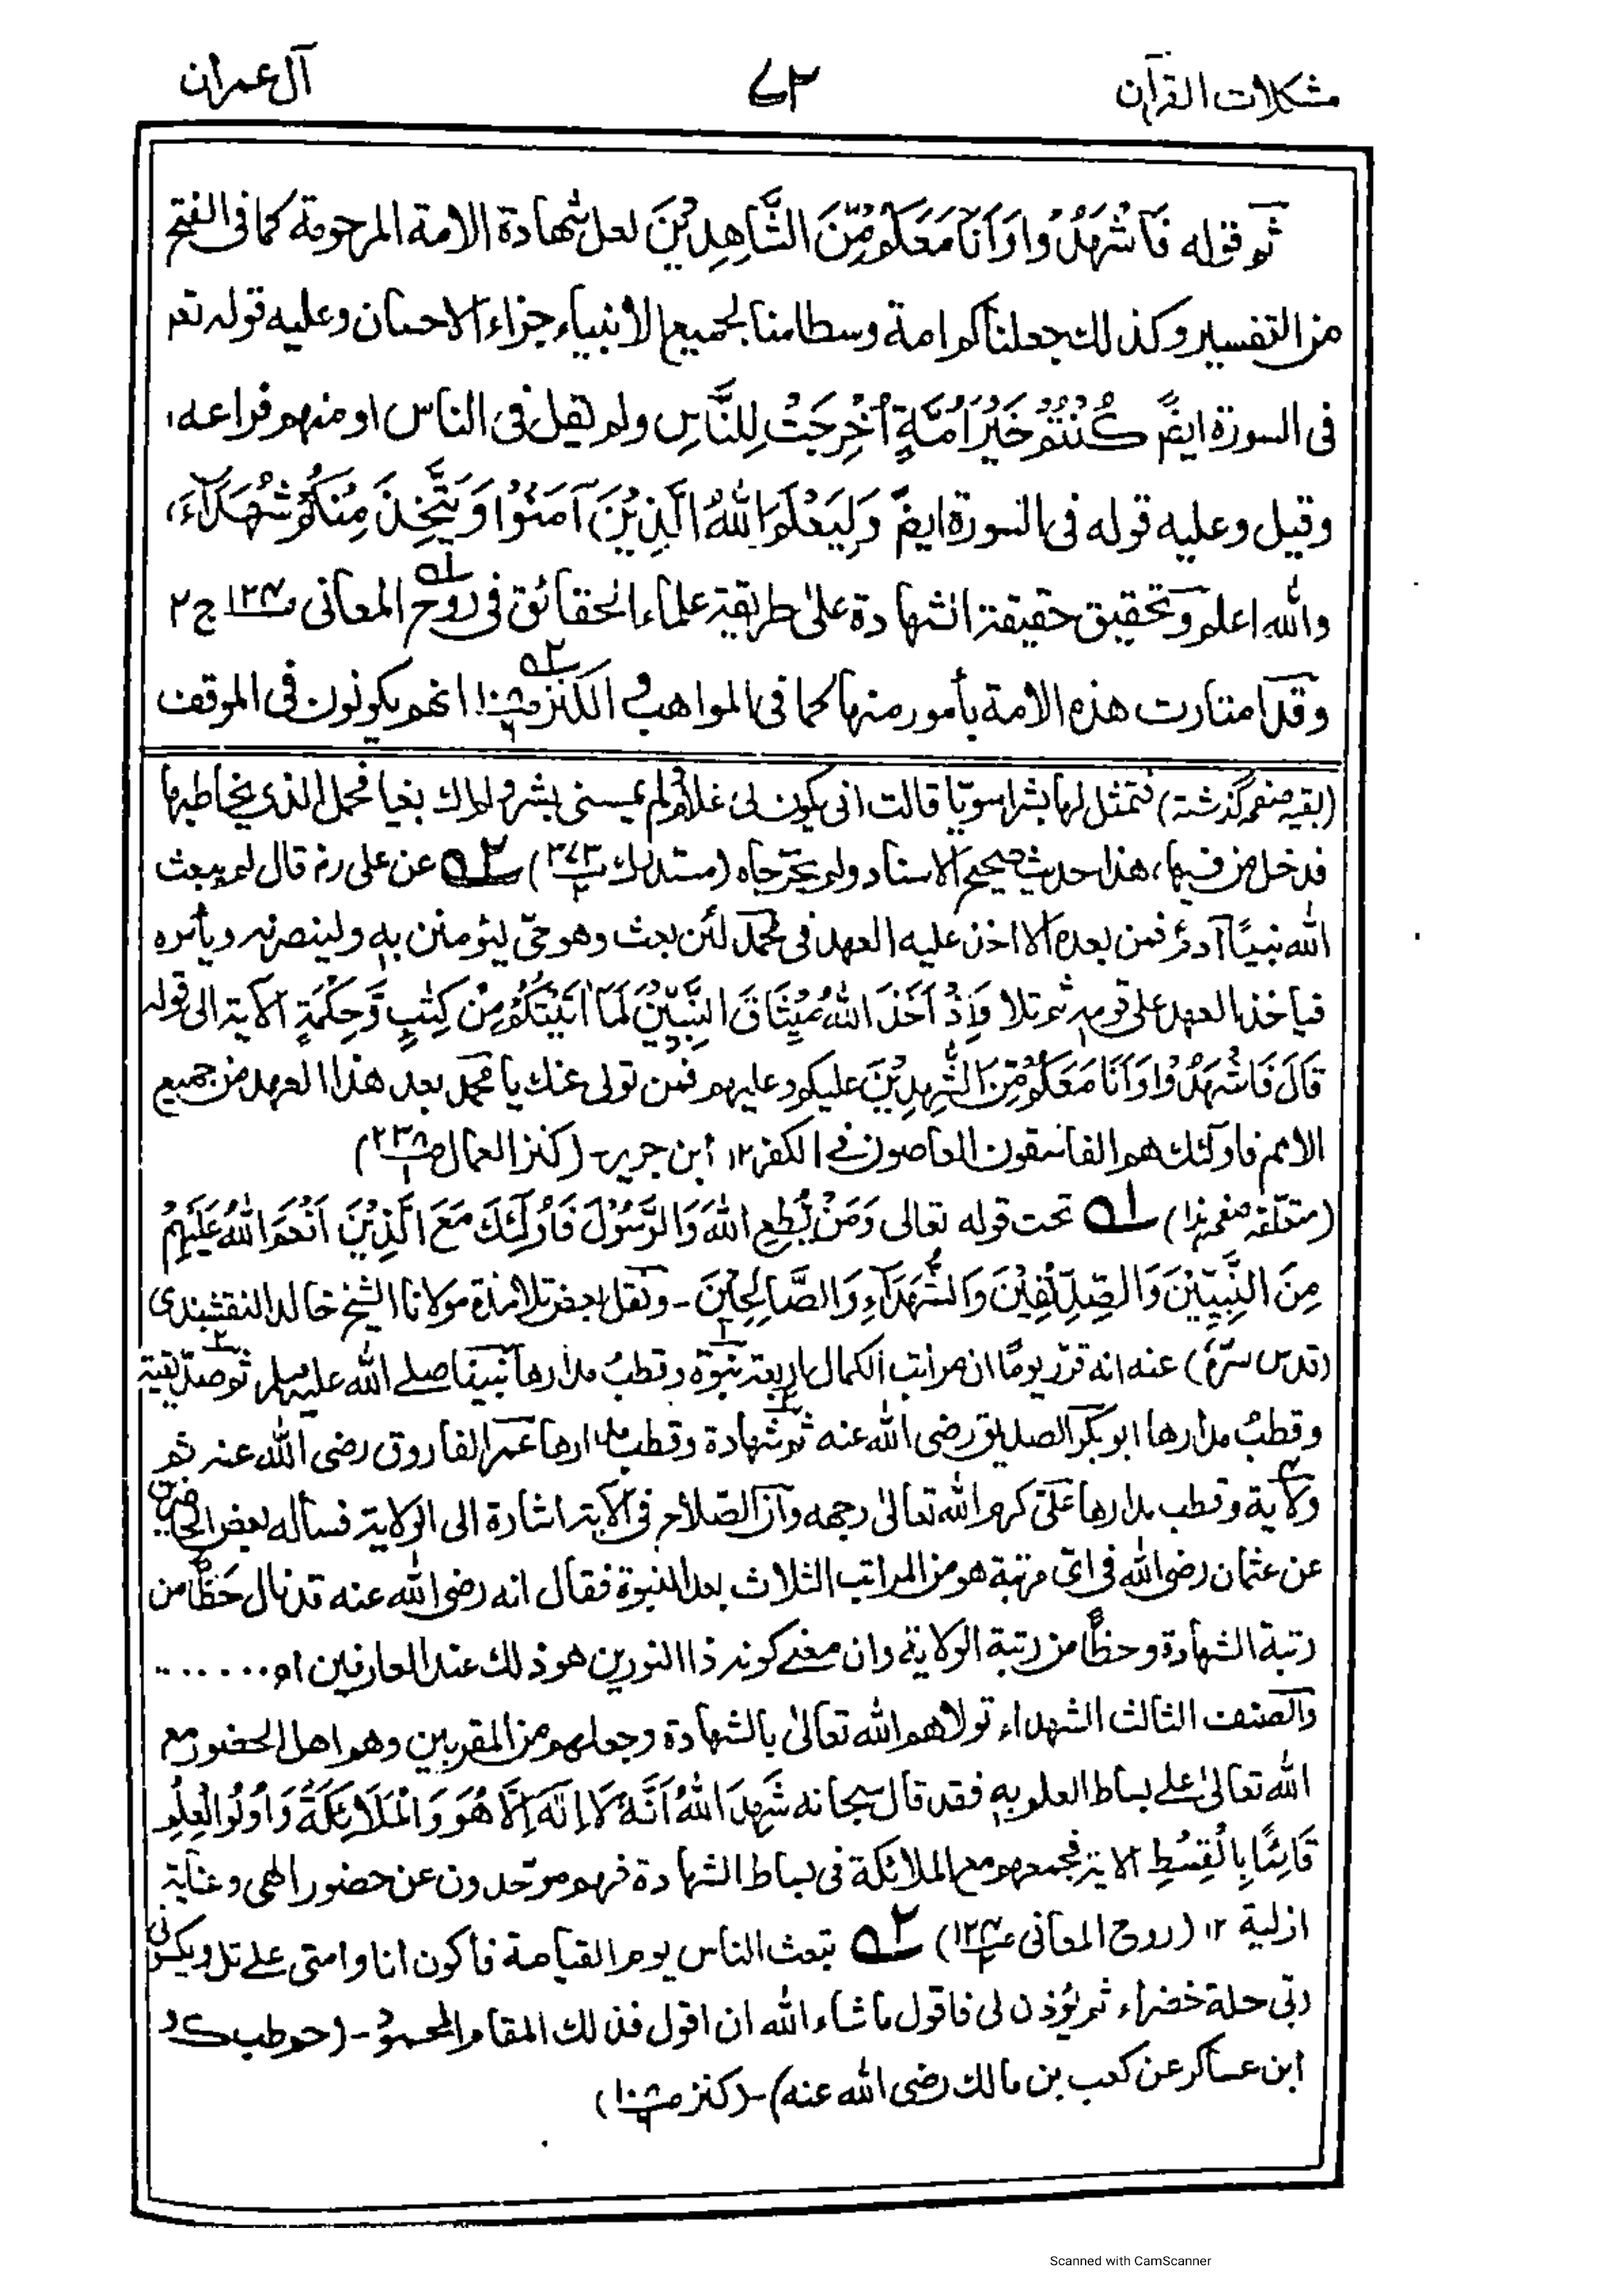 مشكلات القرآن
٧٢
آل عمران
ثم قوله فَاشْهَدُوْا وَاَنَا مَعَكُمْ مِّنَ الشَّاهِدِيْنَ لعل شهادة الامة المرحومة كما فى الفتح
من التفسير وكذلك جعلناكم امة وسطا منا لجميع الأنبياء جزاء الاحسان وعليه قوله تعم
فى السورة ايضً كُنْتُمْ خَيْرَ اُمَّةٍ اُخْرِجَتْ لِلنَّاسِ ولم يقل فى الناس او منهم فراعه،
وقيل وعليه قوله فى السورة ايضً وَلِيَعْلَمَ اللهُ الَّذِيْنَ آمَنُوْا وَيَتَّخِذَ مِنْكُمْ شُهَدَآءَ،
والله اعلم وتحقيق حقيقة الشهادة على طريقة علماء الحقائق فى روح المعانى ١٢٤ ج ٢
وقد امتازت هذه الامة بأمور منها كما فى المواهب و الكنز انهم يكونون فى الموقف
(بقيه صفحه گذشته) فتمثل لها بشرا سويّا قالت انى يكون لى غلام ولم يمسسنى بشر ولم اك بغيا فحمل الذى يخاطبها
فدخل من فيها، هذا حديث صحيح الاسناد ولم يخرجاه (مستدرك ٣٧٣/٢) ٢ه عن على رض قال لم يبعث
الله نبيًا آدمَ فمن بعده الا اخذ عليه العهد فى محمد لئن بعث وهو حىّ ليؤمنن به ولينصرنه ويأمره
فيأخذ العهد على قومه ثم تلا وَاِذْ اَخَذَ اللهُ مِيْثَاقَ النَّبِيّٖنَ لَمَا اٰتَيْتُكُمْ مِّنْ كِتٰبٍ وَّحِكْمَةٍ الآية الى قوله
قَالَ فَاشْهَدُوْا وَاَنَا مَعَكُمْ مِّنَ الشّٰهِدِيْنَ عليكم وعليهم فمن تولى عنك يا محمد بعد هذا العهد من جميع
الامم فاولئك هم الفاسقون العاصون فى الكفر ١٢ ابن جرير - (كنز العمال ٢٣٨/١)
(متعلقه صفحه هذا) ١ه تحت قوله تعالى وَمَنْ يُّطِعِ اللهَ وَالرَّسُوْلَ فَاُولٰٓئِكَ مَعَ الَّذِيْنَ اَنْعَمَ اللهُ عَلَيْهِمْ
مِنَ النَّبِيّيْنَ وَالصِّدِّيْقِيْنَ وَالشُّهَدَآءِ وَالصَّالِحِيْنَ - ونقل بعض تلامذة مولانا الشيخ خالد النقشبندى
(قدس سرّهٗ) عنه انه قرّر يومًا ان مراتب الكمال اربعة نبوّة وقطبُ مدارها نبينا صلے الله عليه وسلم ثم صدّيقية
وقطبُ مدارها ابو بكر الصديق رضى الله عنه ثم شهادة وقطب مدارها عمر الفاروق رضى الله عنه ثم
ولاية وقطب مدارها علىّ كرم الله تعالىٰ وجهه وانّ الصّلاح فى الآية اشارة الى الولاية فسأله بعض الحاضرين
عن عثمان رضى الله فى اىّ مرتبة هو من المراتب الثلاث بعد النبوة فقال انه رضى الله عنه قد نال حَظًّا من
رتبة الشهادة وحظًّا من رتبة الولاية وان معنے كونه ذا النورين هو ذلك عند العارفين اه......
والصنف الثالث الشهداء تولاهم الله تعالىٰ بالشهادة وجعلهم من المقربين وهم اهل الحضور مع
الله تعالىٰ علے بساط العلم به فقد قال سبحانه شَهِدَ اللهُ اَنَّهٗ لَا اِلٰهَ اِلَّا هُوَ وَالْمَلَائِكَةُ وَاُولُوا الْعِلْمِ
قَائِمًا بِالْقِسْطِ الاية فجمعهم مع الملائكة فى بساط الشهادة فهم موحّدون عن حضور الهى وعناية
ازلية ١٢ (روح المعانى ١٢٤/٢) ٢ه تبعث الناس يوم القيامة فأكون انا وامتى علے تل ويكسونى
ربّى حلة خضراء ثم يؤذن لى فاقول ما شاء الله ان اقول فذلك المقام المحمود - (حم طب ك و
ابن عساكر عن كعب بن مالك رضى الله عنه) - (كنز)
Scanned with CamScanner